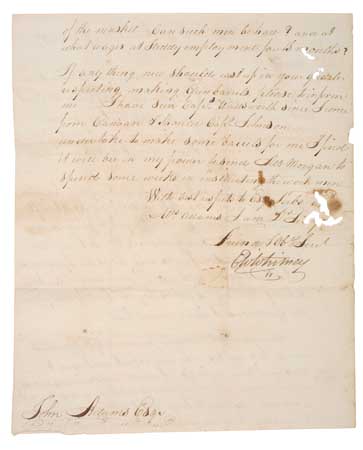 of the musket Can such men be had? and at
what wages at steady employment for 12 months?
If any thing new should cast up in your quarter
respecting making Gun barrels please to inform
me I have seen Capt. since I came
from Canaan & I Capt. Johnson
undertake to make some barrels for me I find
it will be in my power to send Mr Morgan to
spend some weeks in instructing the workmen
With best respects to Esq.
Mrs Adams I am Dr Sir
Your Obt. Servt
E Whitney
John Adams Esq.